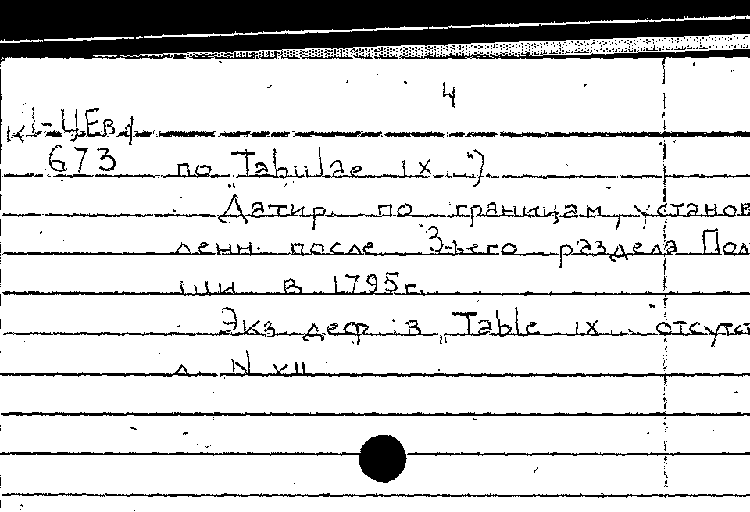 4
К1-ЦЕв
673 по „Tabulae IX...“)
Датир. по границам, установ
ленн. после 3-ьего раздела Поль
ши в 1795г.
Экз. деф: в „Table IX... отсутст
л. N XII